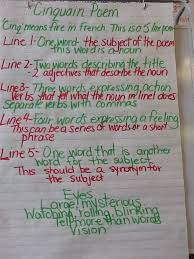 Cinquain Poem
Cinq means five in French. This is a 5 line poem
Line 1- One word- the subject of the poem
This word is a noun
Line 2- Two words describing the title
- 2 adjectives that describe the noun
Line 3- Three words expressing action
Verbs that tell what the noun in line 1 does
Separate verbs with commas
Line 4- four words expressing a feeling
This can be a series of words or a short
phrase
Line 5- One word that is another
word for the subject
This should be a synonym for
the subject
Eyes
Large, mysterious
Watching, rolling, blinking
Tell more than words
Vision